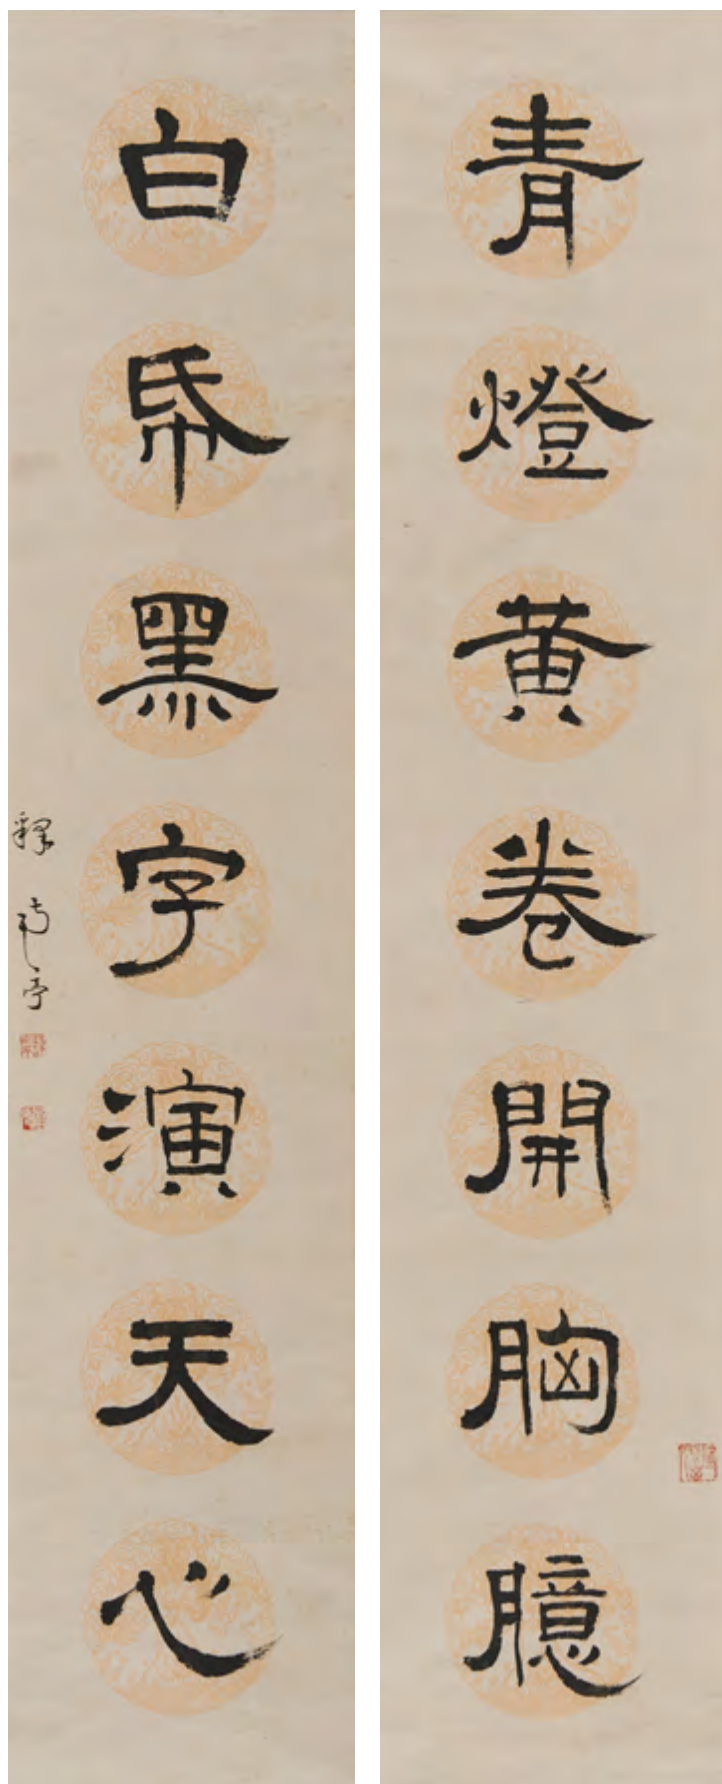 青燈黃卷開胸臆
白帋黑字演天心
釋南亭